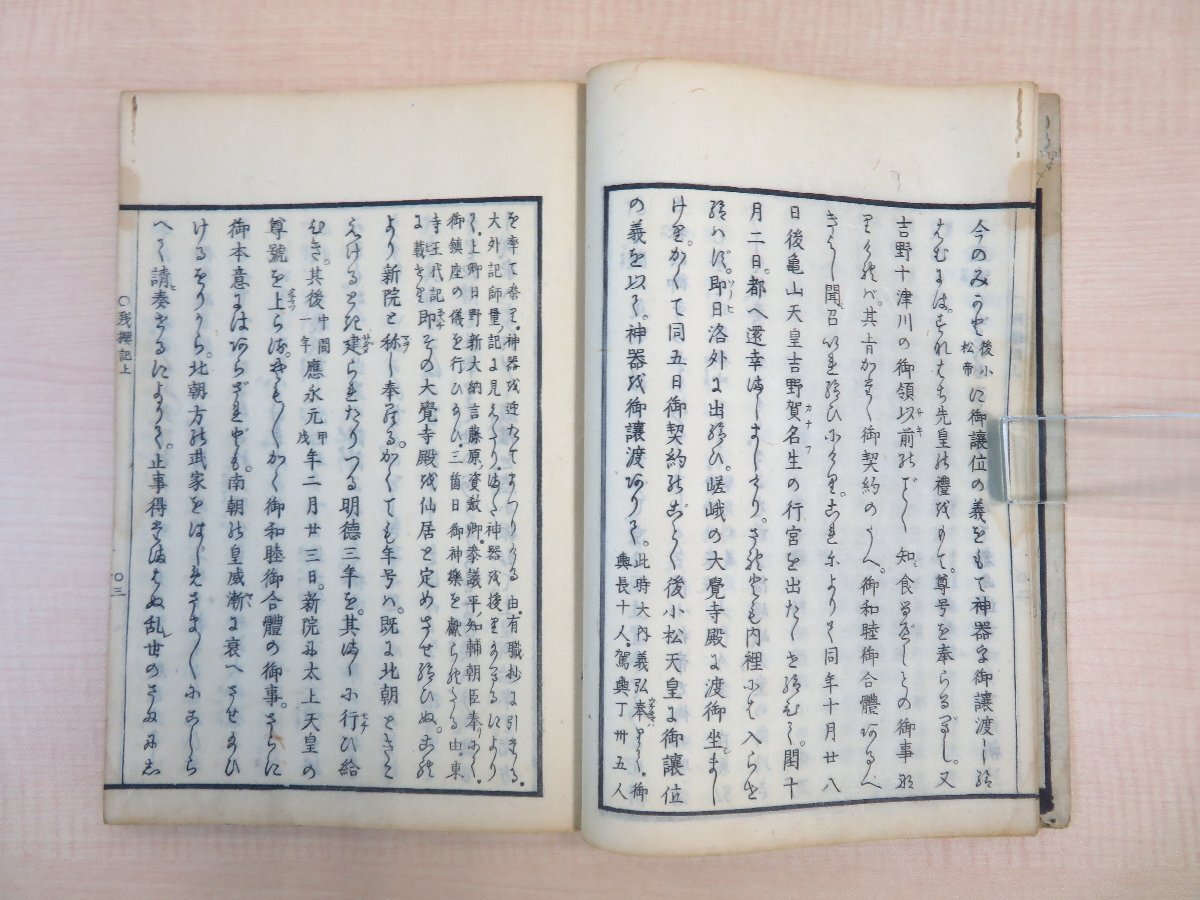 今のみかど後小松帝に御譲位の義をもて神器を御譲渡し給
はむには。それはち先皇の禮をもて。尊号を奉らるべし。又
吉野十津川の御領以前のごとく知食るべしとの御事
其旨かたく御契約のうへ。御和睦御合體あるべ
きよし聞召いれ給ひにけり。これによりて同年十月廿八
日後亀山天皇吉野賀名生の行宮を出たしせ給ひて。閏十
月二日。都へ還幸ましましけり。されども内裡には入らせ
給はず。即日洛外に出給ひ。嵯峨の大覺寺殿に渡御坐まし
けり。かくて同五日御契約のごとく後小松天皇に御譲位
の義を以て。神器を御譲渡ありき。此時大内義弘奉る。御輿長十人。駕輿丁卅五人
を率て参り。神器を迎たてまつりける由。有職抄に引る。大外記師量ノ記に見えたり。また神器を後りまするにより
て。上卿日野新大納言藤原ノ資教卿。參議平ノ知輔朝臣奉りて。御鎮座の儀を行ひ給ひ。三箇日御神樂を獻られたる由。東
寺王代記に載せり即その大覺寺殿を仙居と定めさせ給ひぬ。これ
より新院と称し奉れる。かくても年号は。既に北朝ときこ
えけるとき建られたりつる明德三年を。其まゝに行ひ給
ひき。其後中間一年應永元甲戌年二月廿三日。新院に太上天皇の
尊號を上らる。かく御和睦御合體の御事。さらに
御本意にはあらざれども。南朝の皇威漸に衰へさせ給ひ
けるをりから。北朝方の武家をはじめ
へて請奏せるによりて。止事得たまはぬ乱世のさまに
○残櫻記上
○三